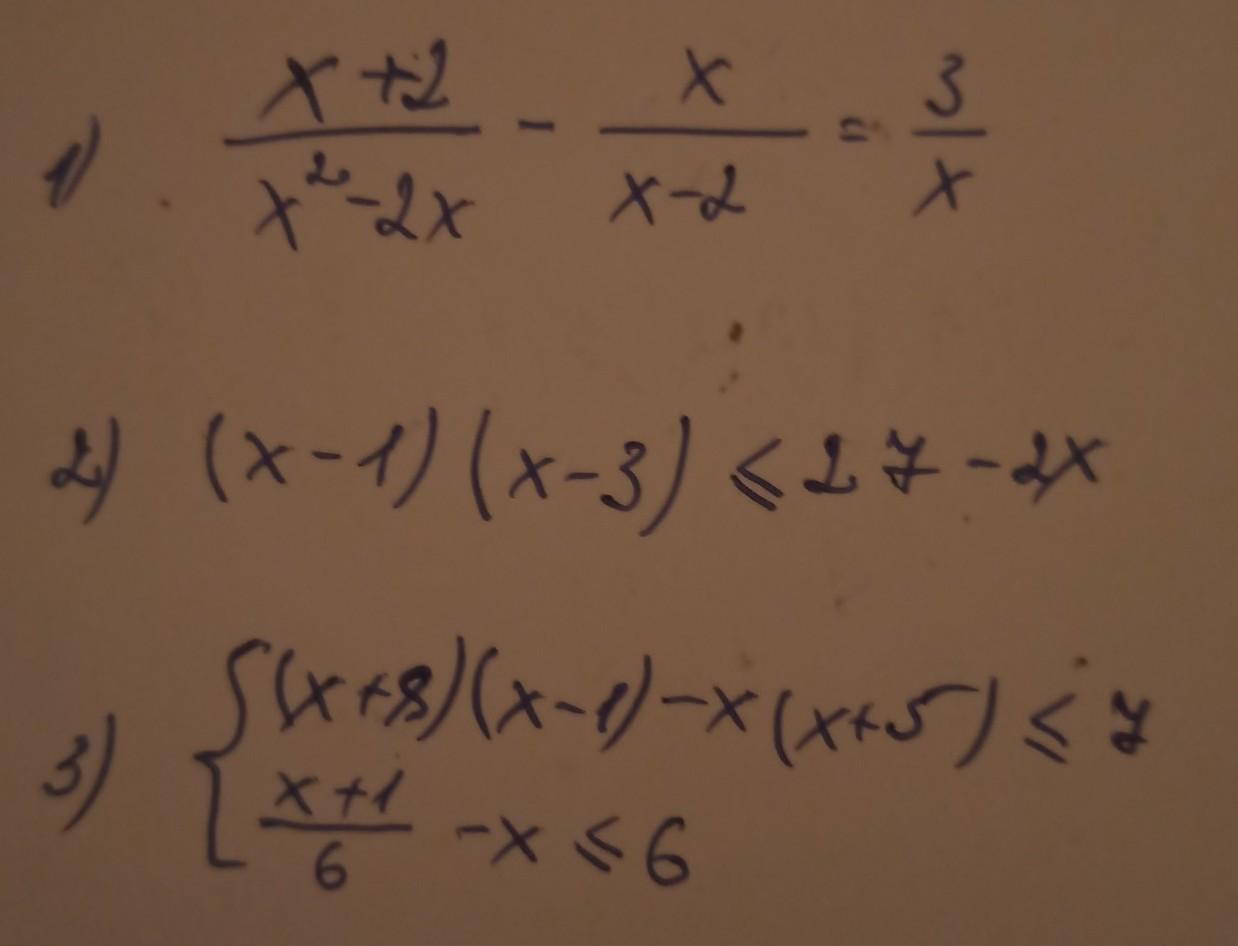 1) (x+2)/(x²-2x) - x/(x-2) = 3/x
2) (x-1)(x-3) ⩽ 27-2x
3) { (x+8)(x-1)-x(x+5) ⩽ 7
(x+1)/6 -x ⩽ 6